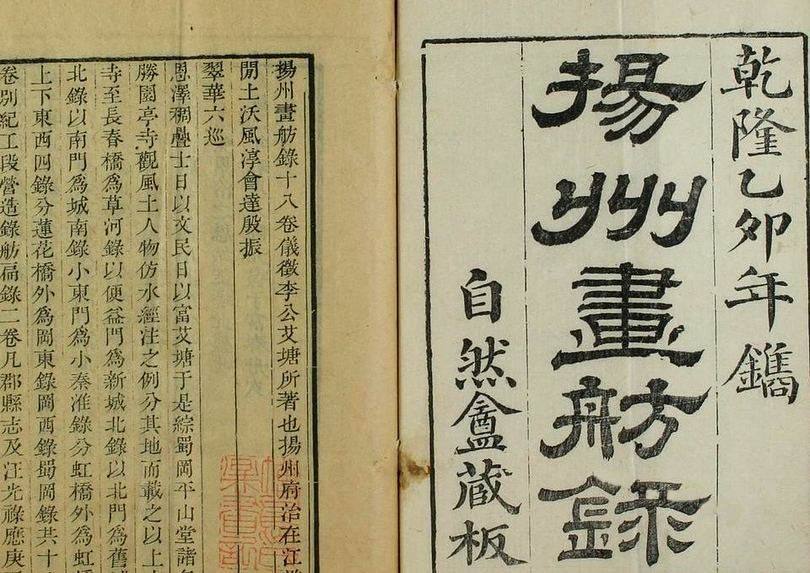 乾隆乙卯年鐫
揚州畫舫錄
自然盦藏板
揚州畫舫錄十八卷儀徵李公艾塘所著也揚州府治在江
閒土沃風淳會達殷振
翠華六巡
恩澤稠疊士日以文民日以富艾塘于是綜蜀岡平山堂諸
勝園亭寺觀風土人物仿水經注之例分其地而載之以上
寺至長春橋爲草河錄以便益門爲新城北錄以北門爲舊
北錄以南門爲城南錄小東門爲小秦淮錄分虹橋外爲虹
上下東西四錄分蓮花橋外爲岡東錄岡西錄蜀岡錄共十
卷別紀工段營造錄舫扁錄二卷凡郡縣志及汪光祿應庚